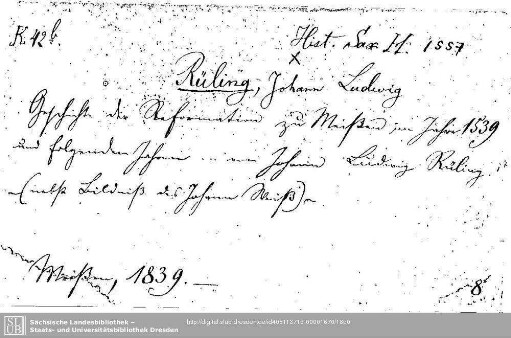 K. 42 b.
Hist. Sax. H. 1557
x
Rüling, Johann Ludwig
Geschichte der Reformation zu Meißen im Jahre 1539
und folgenden Jahren ... von Johann Ludwig Rüling.
(nebst Bildniß des Johann Weiß).
Meißen, 1839.
8°
SLUB
Sächsische Landesbibliothek –
Staats- und Universitätsbibliothek Dresden